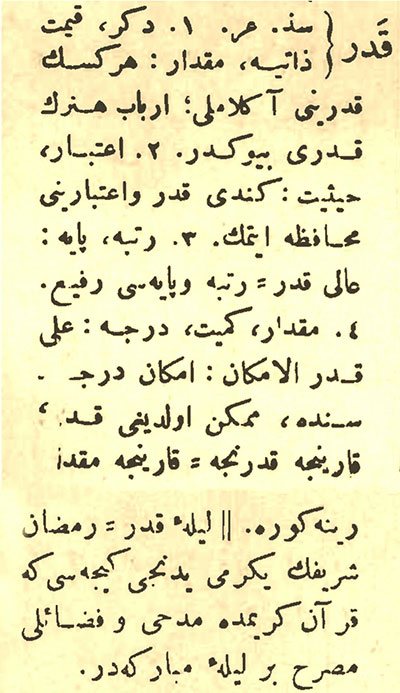 قَدر { سذ. عر. ١. دكر، قيمت
ذاتيــه، مقدار : هركسـك
قدرينى آ كلاملى؛ ارباب هـنرك
قـدرى بيوكـدر. ٢. اعتبـار،
حيثيت : كندى قدر واعتبارينى
محـافظه ايتمك. ٣. رتبه، پايه :
عالى قدر = رتبه وپايه‌سى رفيـع.
٤. مقدار، كميت، درجـه : على
قـدر الامكان : امكان درجـ .
سـنده، ممكن اولديغى قـد
قارينجه قدرنجه = قارينجه مقدا
رينه كوره. || ليلهٔ قدر = رمضان
شريفك يكرمى يدنجى كيجه‌سى كه
قر آن كريمده مدحى و فضـائلى
مصرح بر ليلهٔ مبا ركه‌در.